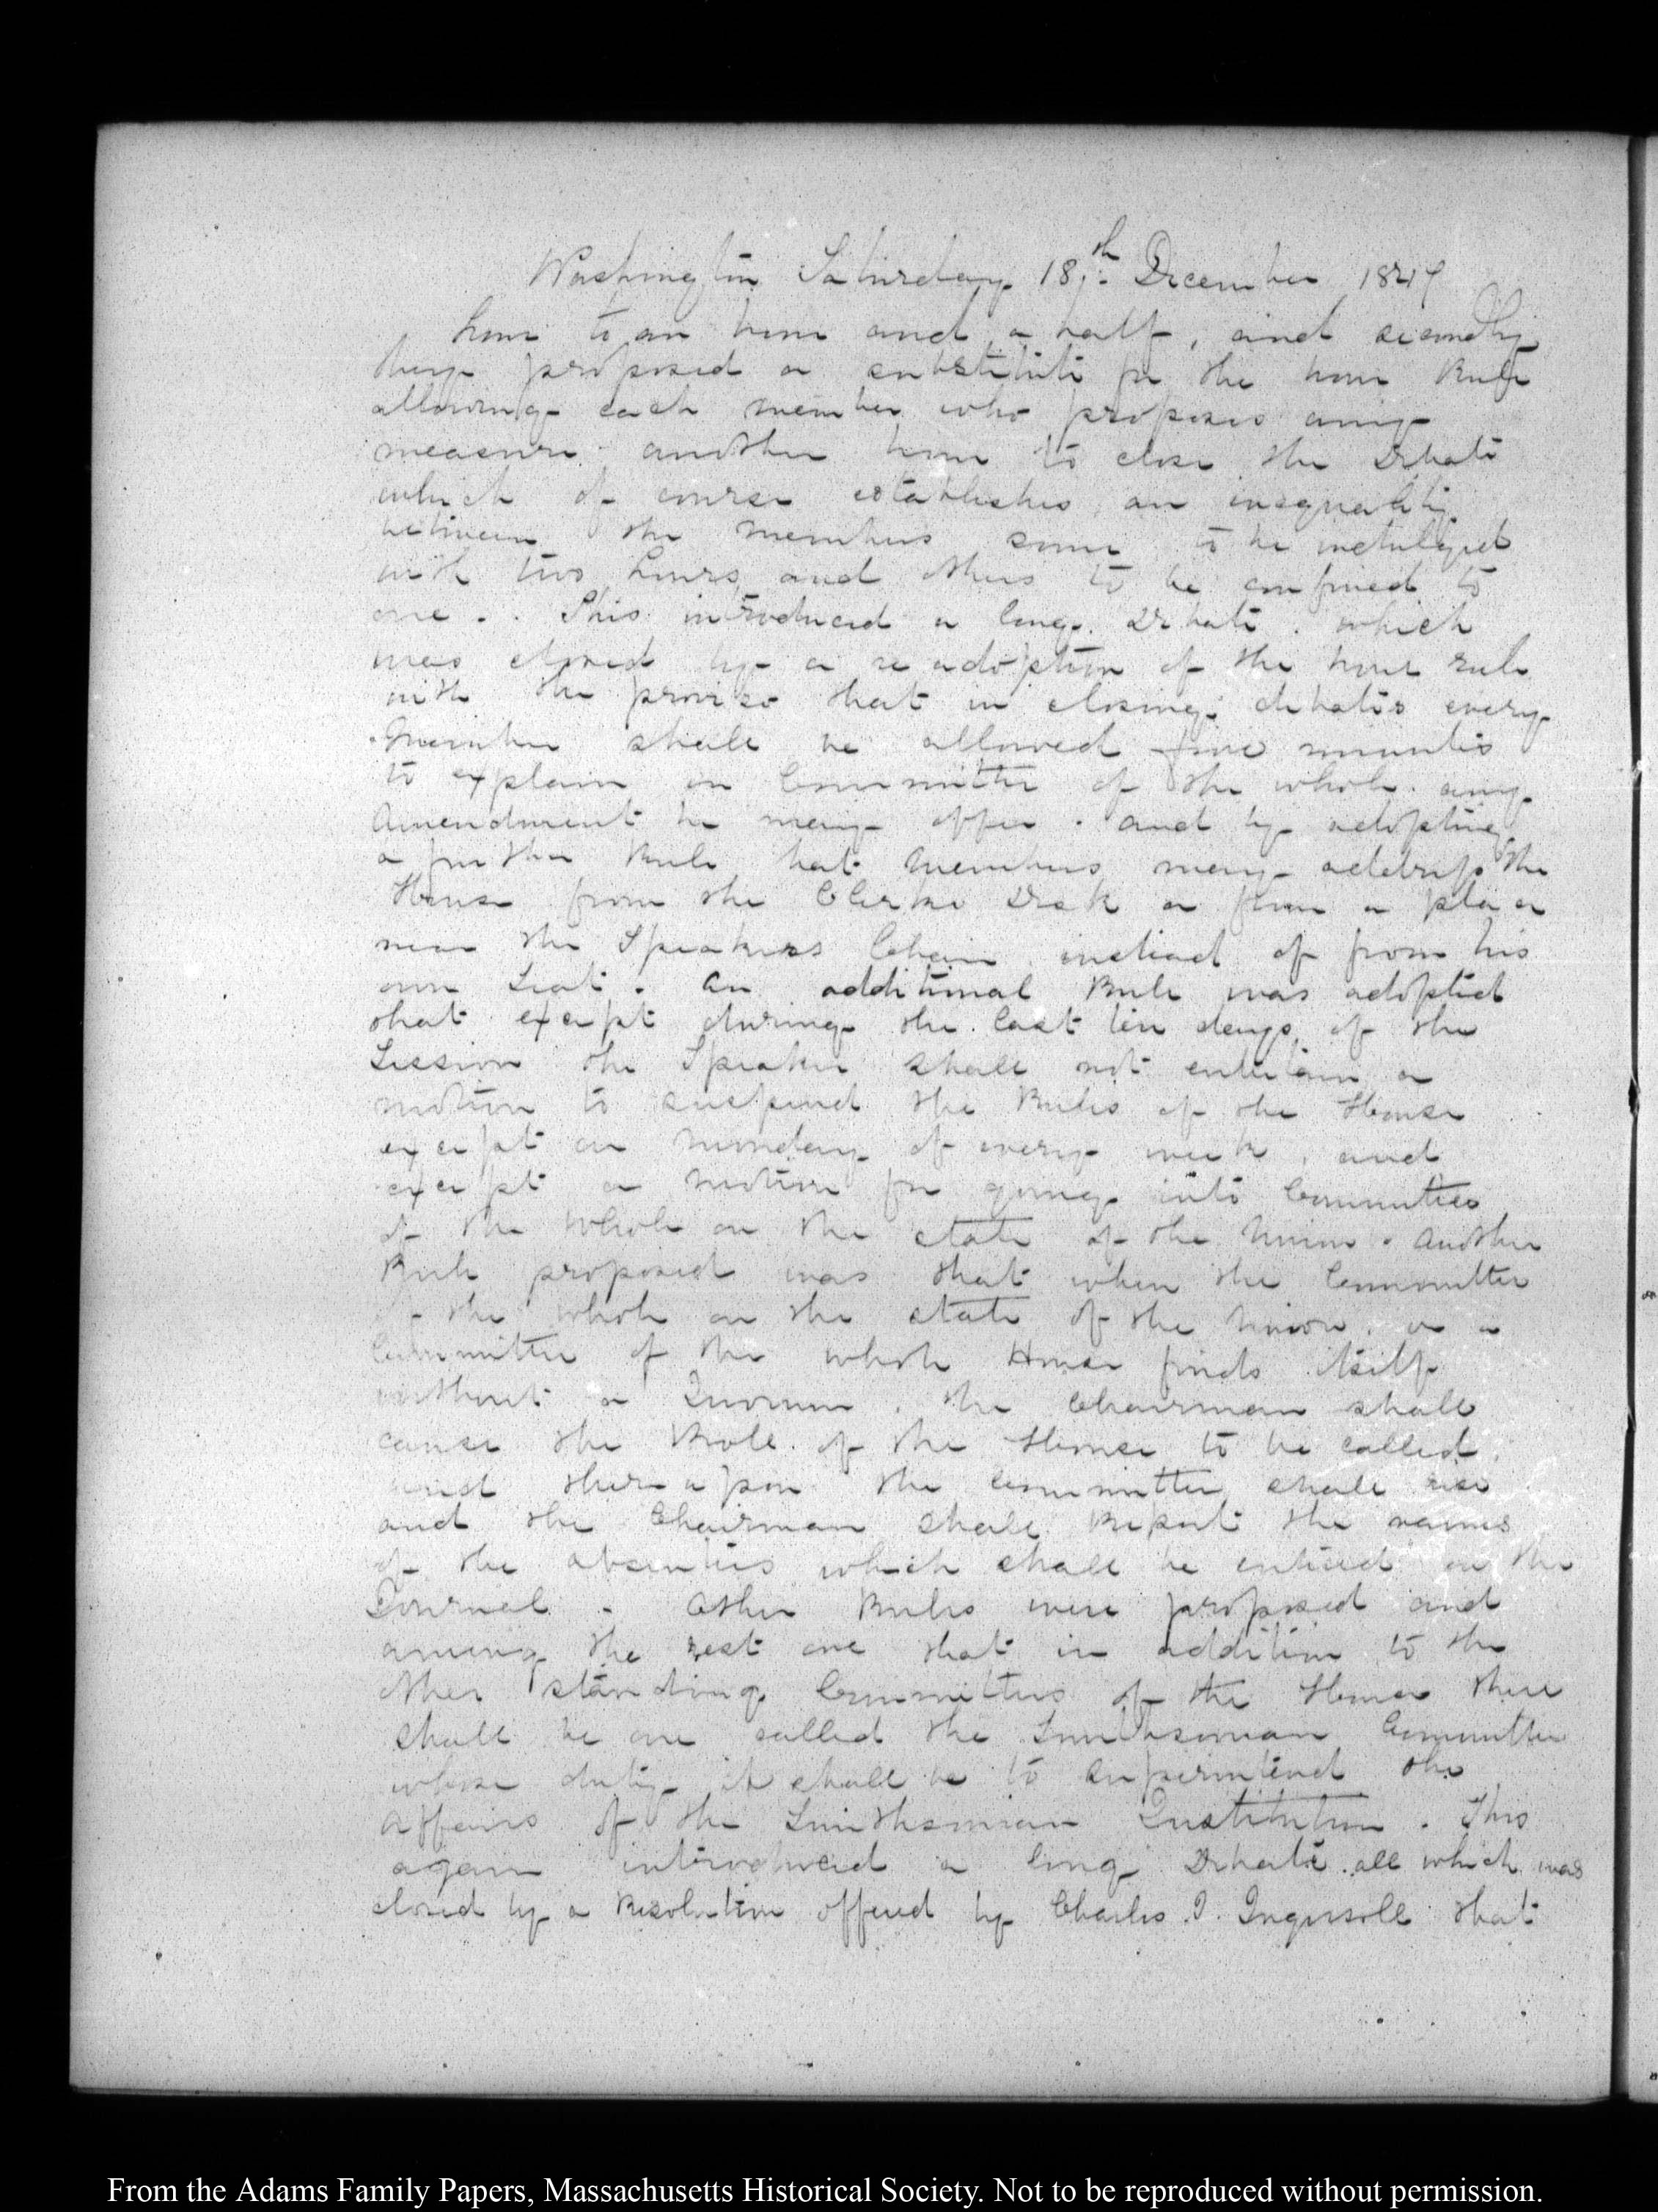 Washington Saturday 18th December 1847
hour to an hour and a half, and secondly
they proposed a substitute for the hour Rule
allowing each member who proposes any
measure another hour to close the debate
which of course establishes an inequality
between the members some to be indulged
with two hours and others to be confined to
one. This introduced a long debate. which
was closed by a re adoption of the hour rule
with the proviso that in closing debates every
member shall be allowed five minutes
to explain in Committee of the whole any
Amendment he may offer. and by adopting
a further Rule that Members may address the
House from the Clerks desk or from a place
near the Speakers Chair instead of from his
own Seat. An additional Rule was adopted
that except during the last ten days of the
Session the Speaker shall not entertain a
motion to suspend the Rules of the House
except on monday of every week, and
except a motion for going into Committee
of the Whole on the state of the Union. Another
Rule proposed was that when the Committee
of the whole on the state of the Union, or a
Committee of the whole House finds itself
without a Quorum, the Chairman shall
cause the Role of the House to be called,
and thereupon the committee shall rise
and the Chairman shall Report the names
of the absentees which shall be entered on the
Journal. Other Rules were proposed and
among the rest one that in addition to the
other standing Committees of the House there
shall be one called the Smithsonian Committee
whose duty it shall be to superintend the
affairs of the Smithsonian Institution. This
again introduced a long debate. all which was
closed by a Resolution offered by Charles J. Ingersoll that
From the Adams Family Papers, Massachusetts Historical Society. Not to be reproduced without permission.